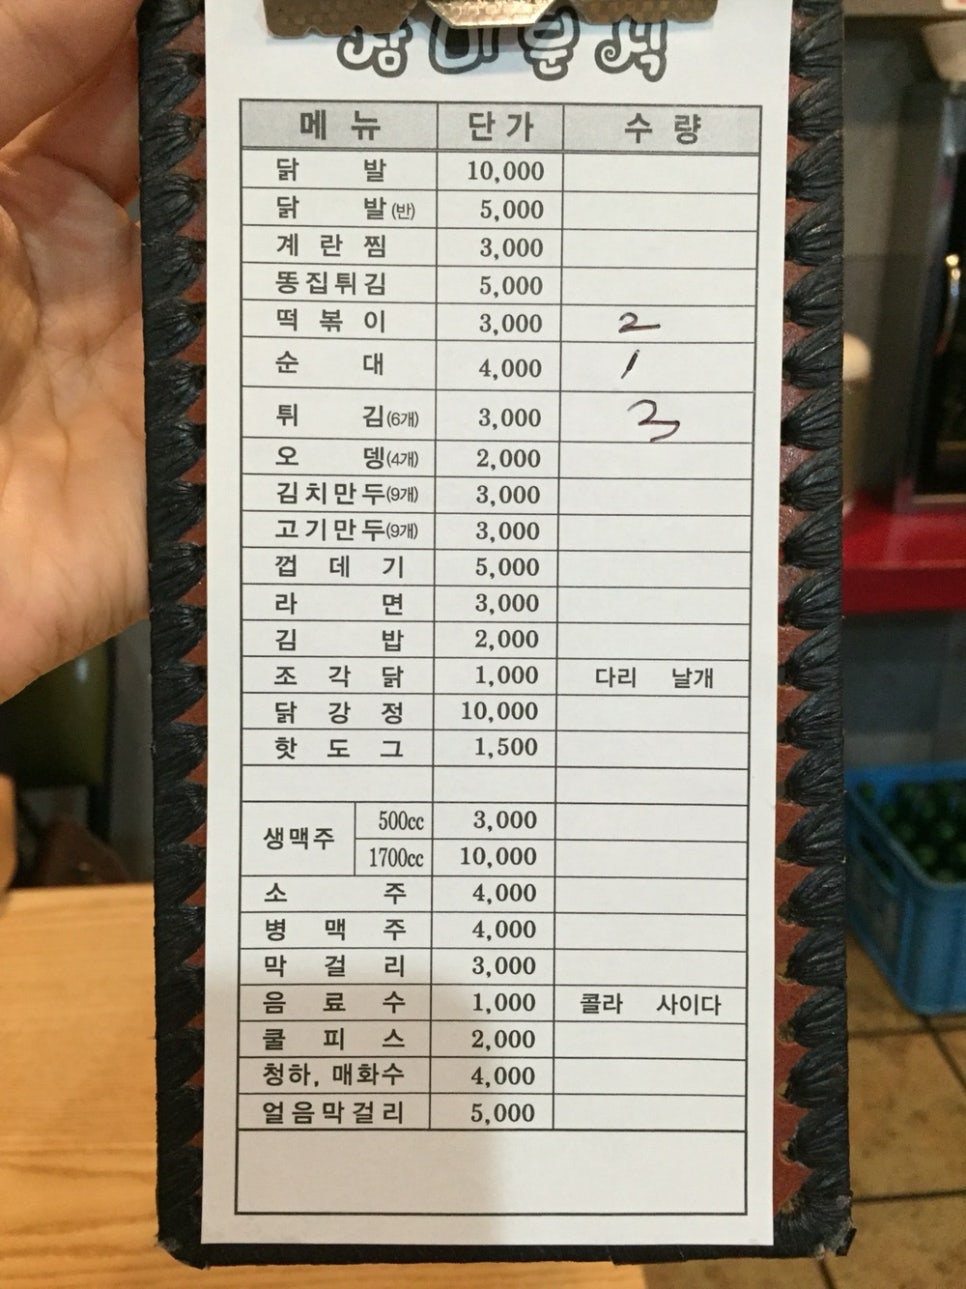 분식
메뉴 단가 수량
닭발 10,000
닭발(반) 5,000
계란찜 3,000
똥집튀김 5,000
떡볶이 3,000 2
순대 4,000 1
튀김(6개) 3,000 3
오뎅(4개) 2,000
김치만두(9개) 3,000
고기만두(9개) 3,000
껍데기 5,000
라면 3,000
김밥 2,000
조각닭 1,000 다리 날개
닭강정 10,000
핫도그 1,500
생맥주 500cc 3,000
1700cc 10,000
소주 4,000
병맥주 4,000
막걸리 3,000
음료수 1,000 콜라 사이다
쿨피스 2,000
청하, 매화수 4,000
얼음막걸리 5,000